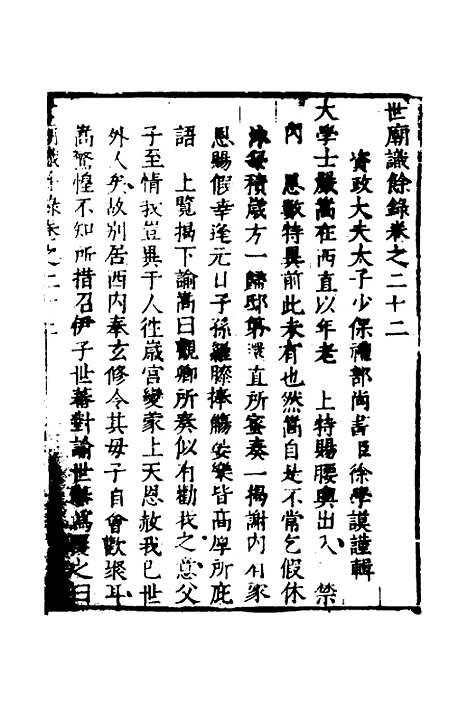 世廟議餘錄卷之二十二
資政大夫太子少保禮部尚書臣徐學謨謹輯
大學士嚴嵩在西直以年老 上特賜腰輿出入 禁
內 恩數特異前此未有也然嵩自是不常乞假休
沐每積歲方一歸邸第還直所蜜奏一揭謝內有蒙
恩賜假幸逢元日子孫羅膝捧觴安樂皆高厚所庇
語 上覽揭下諭嵩曰觀卿所奏似有勸我之意父
子至情我豈異于人徃歲宮變蒙上天恩赦我已世
外人矣故別居西內奉玄修令其母子自會歡聚耳
嵩驚惶不知所措召伊子世蕃對諭世蕃爲 之曰